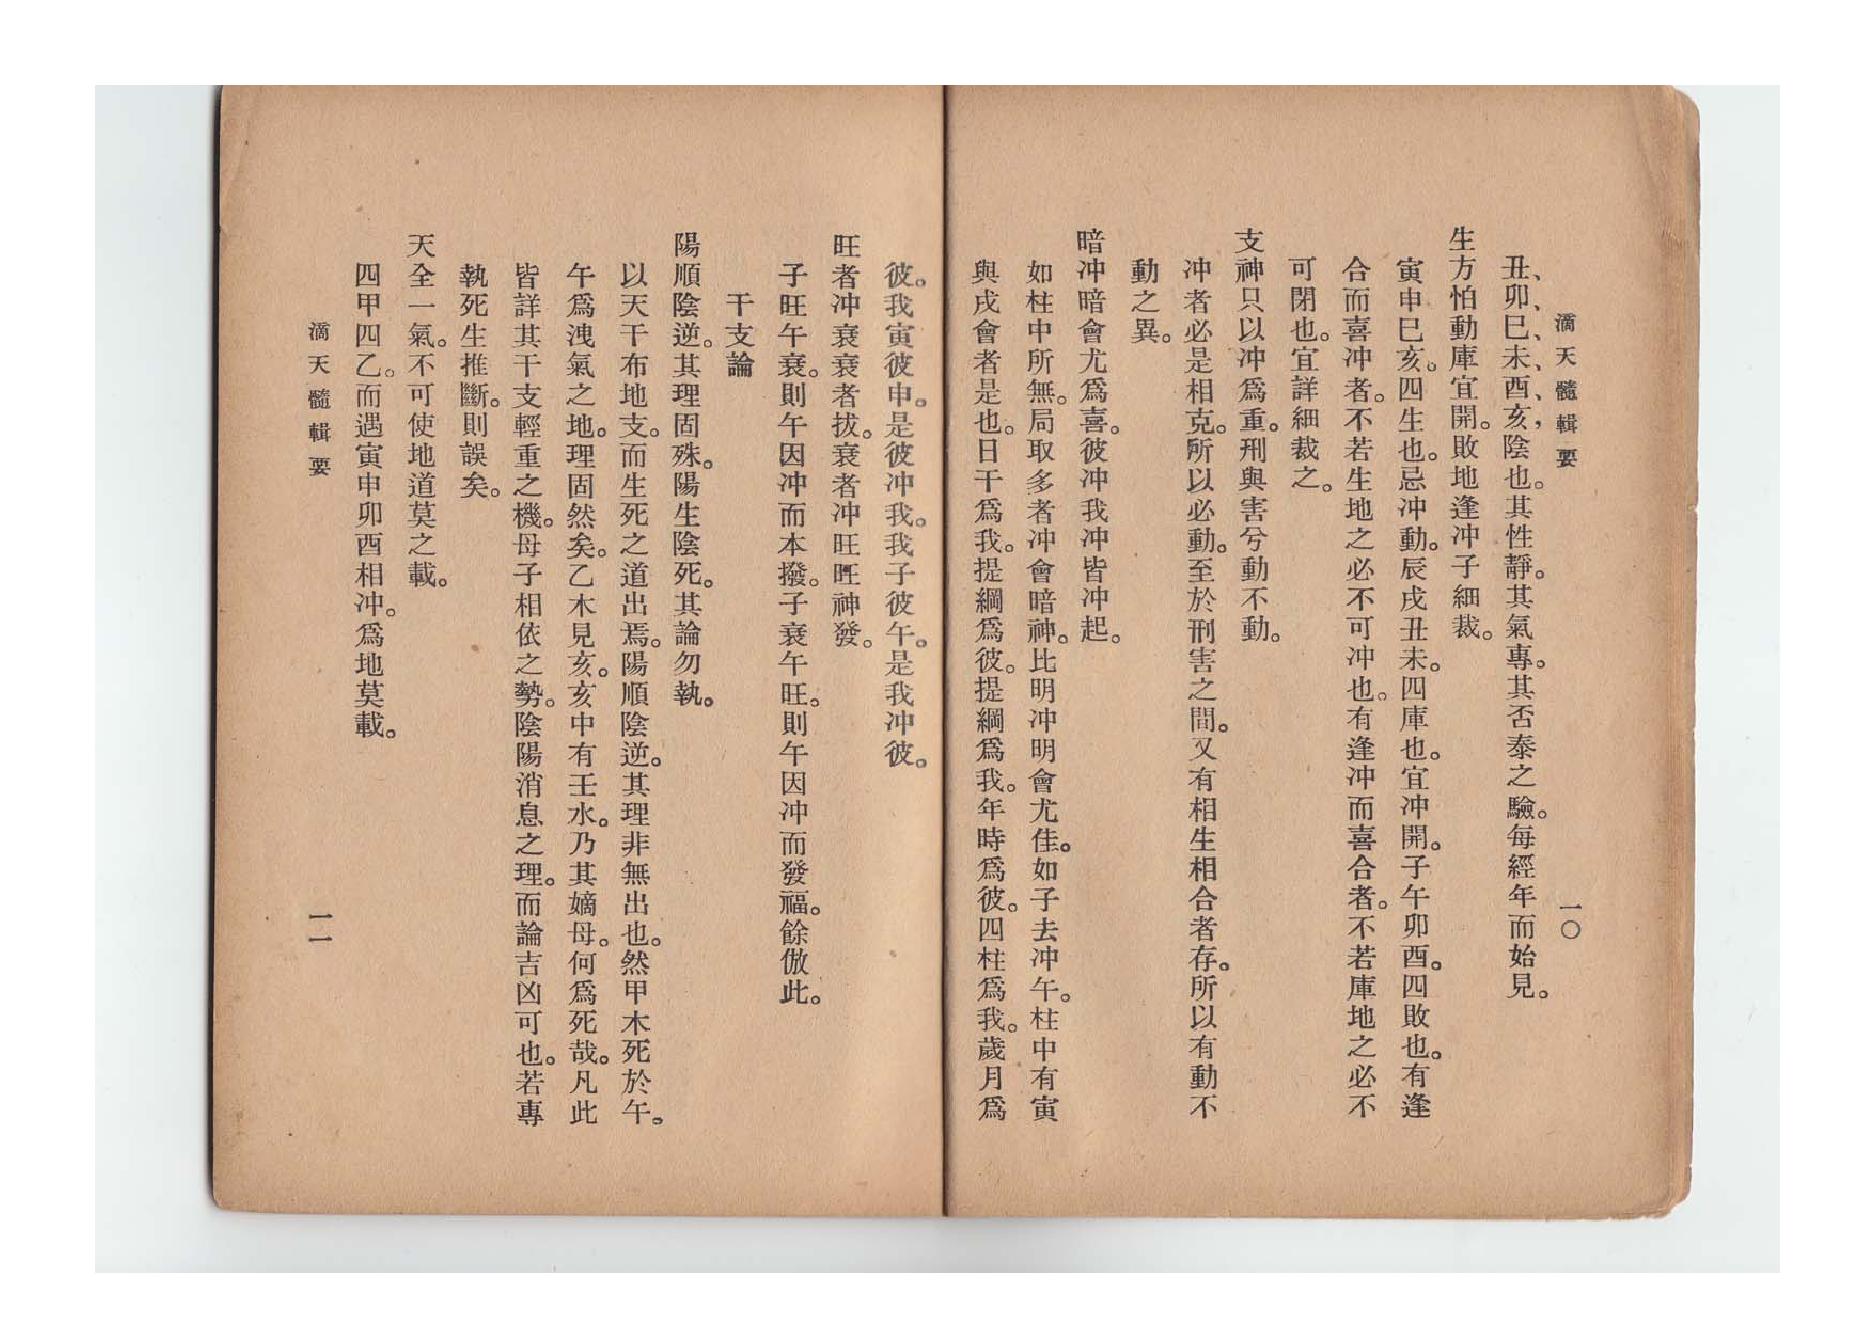 滴天髓輯要
一〇
丑、卯、巳、未、酉、亥，陰也。其性靜。其氣專。其否泰之驗。每經年而始見。
生方怕動庫宜開。敗地逢冲子細裁。
寅申巳亥。四生也。忌冲動。辰戌丑未。四庫也。宜冲開。子午卯酉。四敗也。有逢
合而喜冲者。不若生地之必不可冲也。有逢冲而喜合者。不若庫地之必不
可閉也。宜詳細裁之。
支神只以冲爲重。刑與害兮動不動。
冲者必是相克。所以必動。至於刑害之間。又有相生相合者存。所以有動不
動之異。
暗冲暗會尤爲喜。彼冲我冲皆冲起。
如柱中所無。局取多者冲會暗神。比明冲明會尤佳。如子去冲午。柱中有寅
與戌會者是也。日干爲我。提綱爲彼。提綱爲我。年時爲彼。四柱爲我。歲月爲
彼。我寅彼申。是彼冲我。我子彼午。是我冲彼。
旺者冲衰衰者拔。衰者冲旺旺神發。
子旺午衰。則午因冲而本撥。子衰午旺。則午因冲而發福。餘倣此。
干支論
陽順陰逆。其理固殊。陽生陰死。其論勿執。
以天干布地支。而生死之道出焉。陽順陰逆。其理非無出也。然甲木死於午。
午爲洩氣之地。理固然矣。乙木見亥。亥中有壬水。乃其嫡母。何爲死哉。凡此
皆詳其干支輕重之機。母子相依之勢。陰陽消息之理。而論吉凶可也。若專
執死生推斷。則誤矣。
天全一氣。不可使地道莫之載。
四甲四乙。而遇寅申卯酉相冲。爲地莫載。
滴天髓輯要
一一